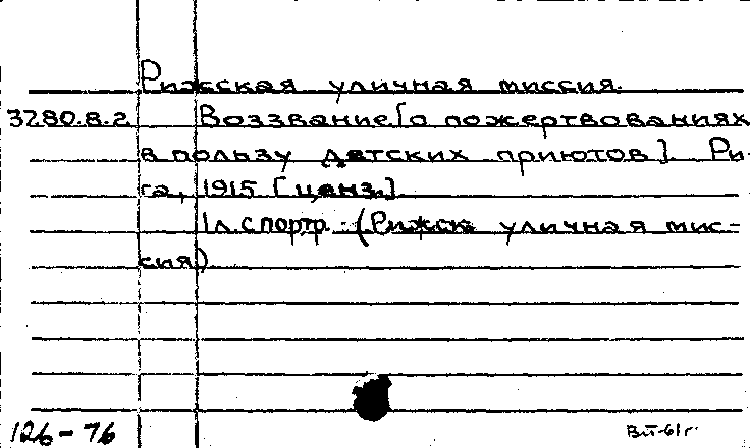 Рижская уличная миссия.
3280.8.2 Воззвание [о пожертвованиях
в пользу детских приютов]. Ри-
га, 1915 [ценз.]
1 л. с портр. (Рижск. уличная мис-
сия)
126-76 ВII-61г.